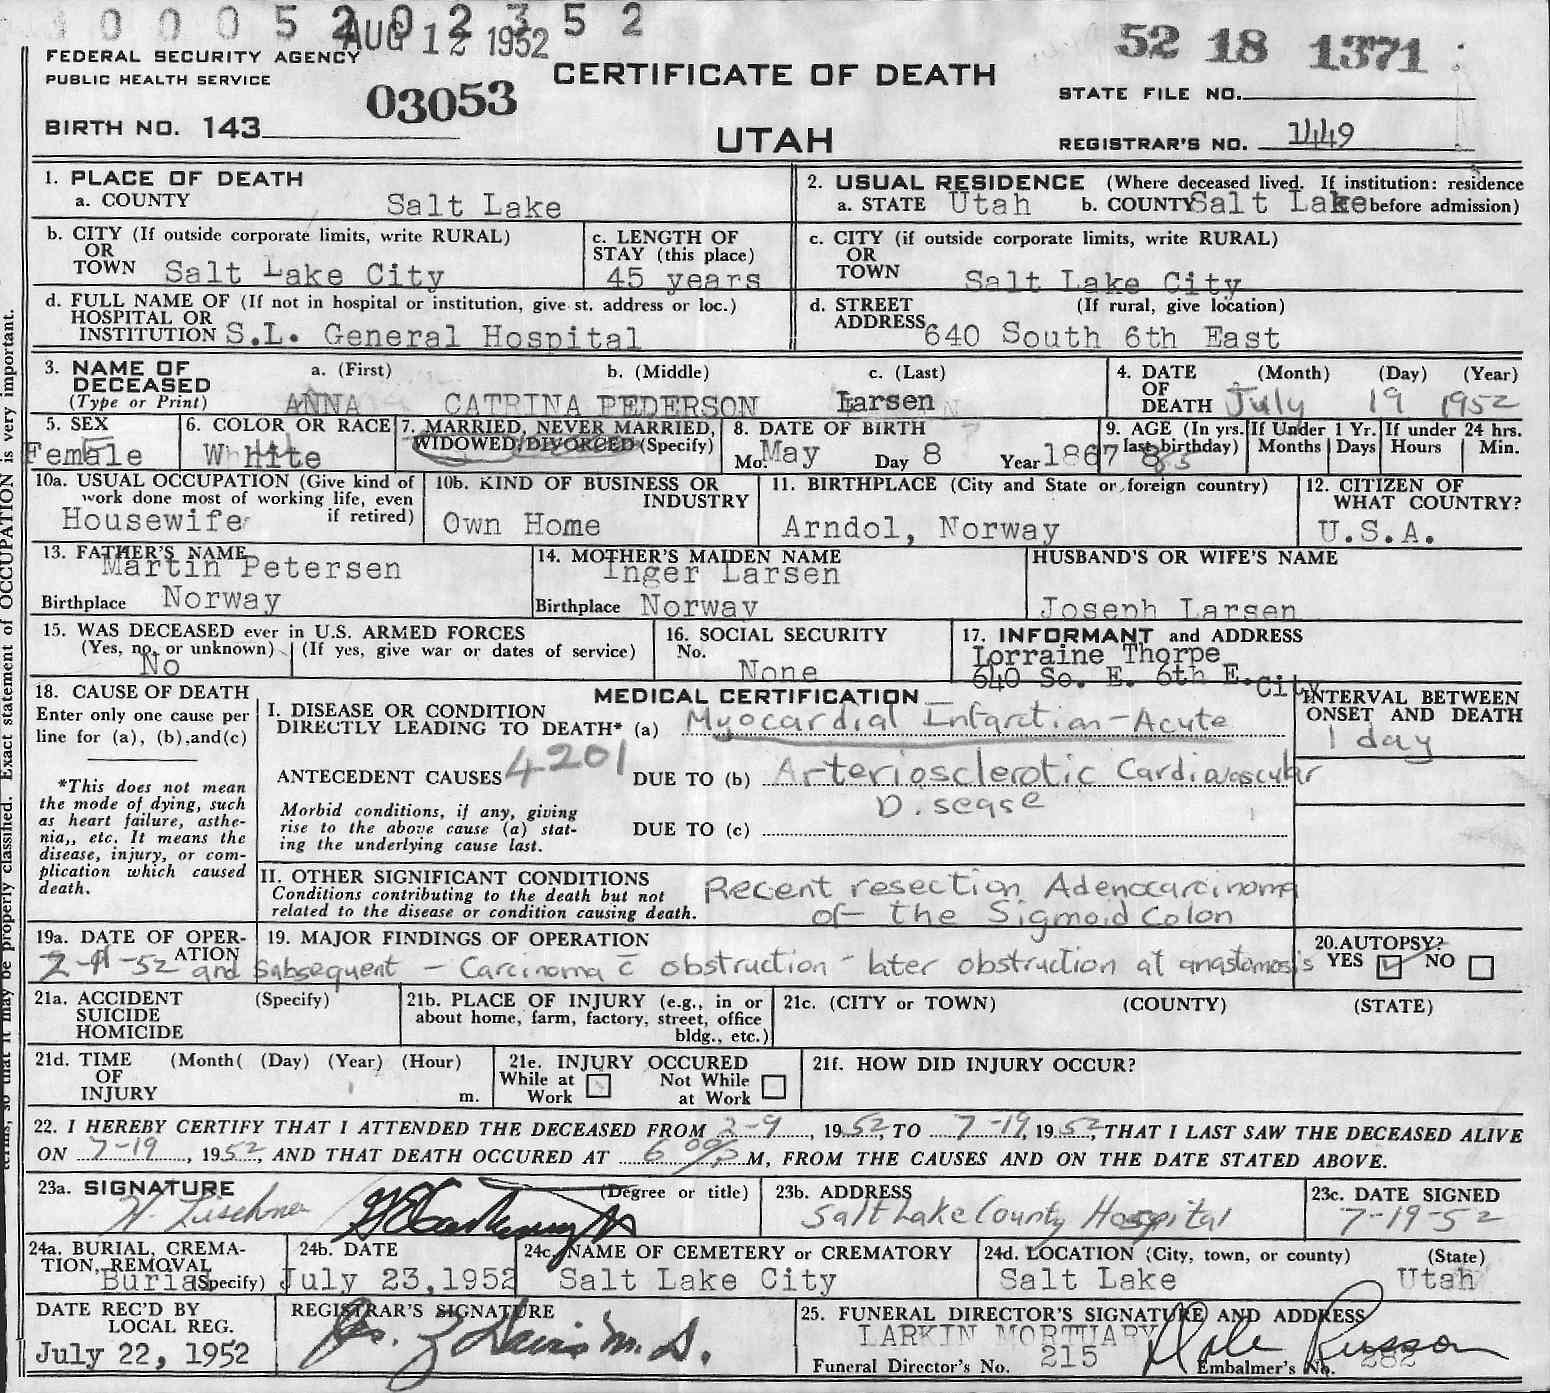 1 0 0 0 5 2 0 2 3 5 2
AUG 12 1952
52 18 1371
FEDERAL SECURITY AGENCY
PUBLIC HEALTH SERVICE
03053
CERTIFICATE OF DEATH
STATE FILE NO.
BIRTH NO. 143
UTAH
REGISTRAR'S NO. 1449
1. PLACE OF DEATH
a. COUNTY Salt Lake
2. USUAL RESIDENCE (Where deceased lived. If institution: residence
a. STATE Utah b. COUNTY Salt Lake before admission)
b. CITY (If outside corporate limits, write RURAL)
OR
TOWN Salt Lake City
c. LENGTH OF
STAY (this place)
45 years
c. CITY (if outside corporate limits, write RURAL)
OR
TOWN Salt Lake City
d. FULL NAME OF (If not in hospital or institution, give st. address or loc.)
HOSPITAL OR
INSTITUTION S.L. General Hospital
d. STREET (If rural, give location)
ADDRESS 640 South 6th East
3. NAME OF a. (First) b. (Middle) c. (Last)
DECEASED
(Type or Print) ANNA CATRINA PEDERSON Larsen
4. DATE (Month) (Day) (Year)
OF
DEATH July 19 1952
5. SEX
Female
6. COLOR OR RACE
White
7. MARRIED, NEVER MARRIED,
WIDOWED, DIVORCED (Specify)
8. DATE OF BIRTH
Mo. May Day 8 Year 1867
9. AGE (In yrs. last birthday) 85
If Under 1 Yr. If under 24 hrs.
Months Days Hours Min.
10a. USUAL OCCUPATION (Give kind of
work done most of working life, even
if retired)
Housewife
10b. KIND OF BUSINESS OR
INDUSTRY
Own Home
11. BIRTHPLACE (City and State or foreign country)
Arndol, Norway
12. CITIZEN OF
WHAT COUNTRY?
U.S.A.
13. FATHER'S NAME
Martin Petersen
Birthplace Norway
14. MOTHER'S MAIDEN NAME
Inger Larsen
Birthplace Norway
HUSBAND'S OR WIFE'S NAME
Joseph Larsen
15. WAS DECEASED ever in U.S. ARMED FORCES
(Yes, no, or unknown) (If yes, give war or dates of service)
No
16. SOCIAL SECURITY
No.
None
17. INFORMANT and ADDRESS
Lorraine Thorpe
640 So. E. 6th E. City
18. CAUSE OF DEATH
Enter only one cause per
line for (a), (b), and (c)
*This does not mean
the mode of dying, such
as heart failure, asthe-
nia,, etc. It means the
disease, injury, or com-
plication which caused
death.
MEDICAL CERTIFICATION
INTERVAL BETWEEN
ONSET AND DEATH
I. DISEASE OR CONDITION
DIRECTLY LEADING TO DEATH* (a) Myocardial Infarction-Acute
1 day
ANTECEDENT CAUSES 4201 DUE TO (b) Arteriosclerotic Cardiovascular
Disease
Morbid conditions, if any, giving
rise to the above cause (a) stat-
ing the underlying cause last.
DUE TO (c)
II. OTHER SIGNIFICANT CONDITIONS
Conditions contributing to the death but not
related to the disease or condition causing death.
Recent resection Adenocarcinoma
of the Sigmoid Colon
19a. DATE OF OPER-
ATION
2-11-52 and subsequent
19. MAJOR FINDINGS OF OPERATION
- Carcinoma c̄ obstruction - later obstruction at anastomosis
20. AUTOPSY?
YES ✓ NO
21a. ACCIDENT (Specify)
SUICIDE
HOMICIDE
21b. PLACE OF INJURY (e.g., in or
about home, farm, factory, street, office
bldg., etc.)
21c. (CITY or TOWN) (COUNTY) (STATE)
21d. TIME (Month( (Day) (Year) (Hour)
OF
INJURY m.
21e. INJURY OCCURED
While at Work Not While at Work
21f. HOW DID INJURY OCCUR?
22. I HEREBY CERTIFY THAT I ATTENDED THE DECEASED FROM 2-9, 1952, TO 7-19, 1952, THAT I LAST SAW THE DECEASED ALIVE
ON 7-19, 1952, AND THAT DEATH OCCURED AT 6 00 P M, FROM THE CAUSES AND ON THE DATE STATED ABOVE.
23a. SIGNATURE (Degree or title)
23b. ADDRESS
Salt Lake County Hospital
23c. DATE SIGNED
7-19-52
24a. BURIAL, CREMA-
TION, REMOVAL
Burial (Specify)
24b. DATE
July 23, 1952
24c. NAME OF CEMETERY or CREMATORY
Salt Lake City
24d. LOCATION (City, town, or county) (State)
Salt Lake Utah
DATE REC'D BY
LOCAL REG.
July 22, 1952
REGISTRAR'S SIGNATURE
M.D.
25. FUNERAL DIRECTOR'S SIGNATURE AND ADDRESS
LARKIN MORTUARY Dale Russon
Funeral Director's No. 215 Embalmer's No. 282
terms, so that it may be properly classified. Exact statement of OCCUPATION is very important.